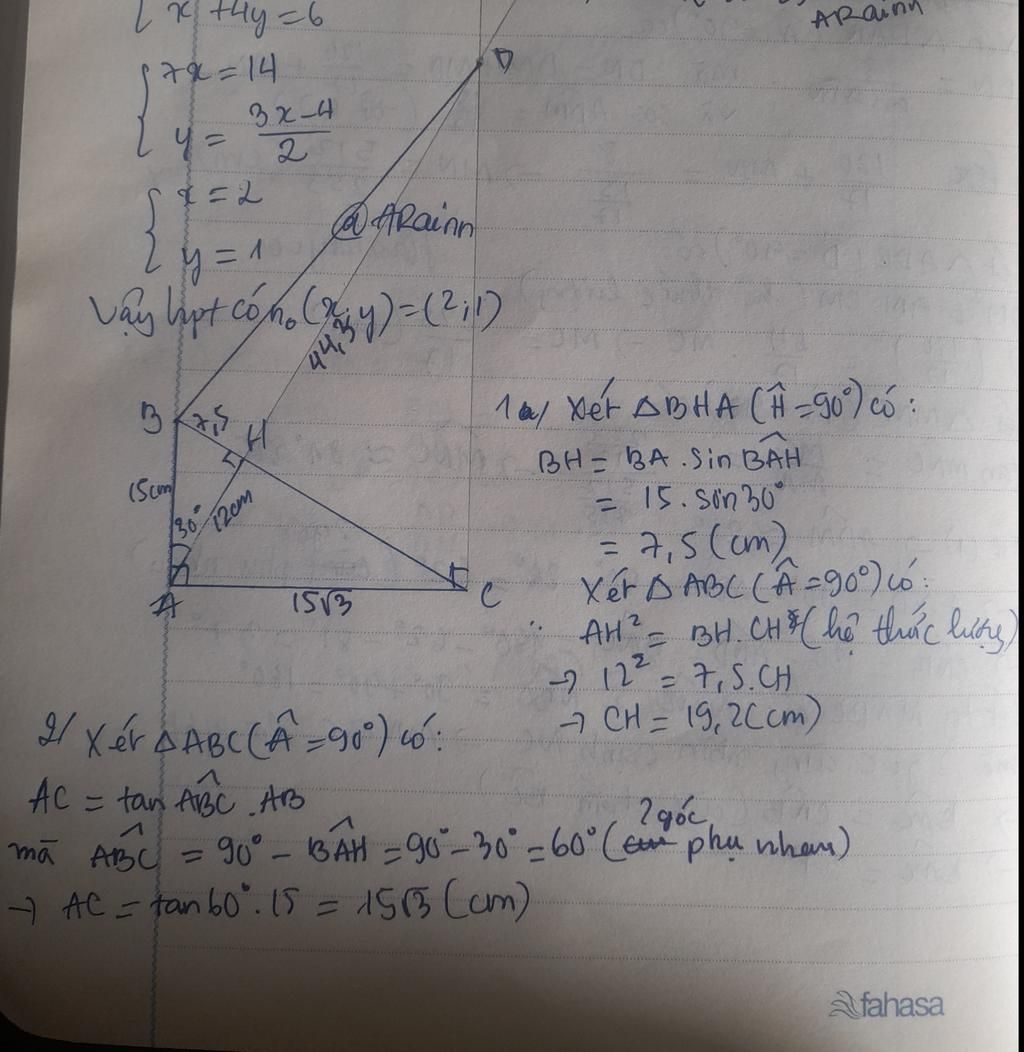 x + 4y = 6
ARainn
7x = 14
y = \frac{3x-4}{2}
x = 2
y = 1
D
@ARainn
Vậy hpt có n₀ (x, y) = (2; 1)
44,3
B
7,5
H
15cm
30°
12cm
A
15√3
C
1a/ Xét △BHA (Ĥ = 90°) có:
BH = BA . sin BÂH
= 15 . sin 30°
= 7,5 (cm)
Xét △ABC (Â = 90°) có:
AH² = BH.CH (hệ thức lượng)
→ 12² = 7,5.CH
→ CH = 19,2 (cm)
2/ Xét △ABC (Â = 90°) có:
AC = tan AB̂C . AB
2 góc
mà AB̂C = 90° - BÂH = 90° - 30° = 60° ( phụ nhau)
→ AC = tan 60° . 15 = 15√3 (cm)
fahasa